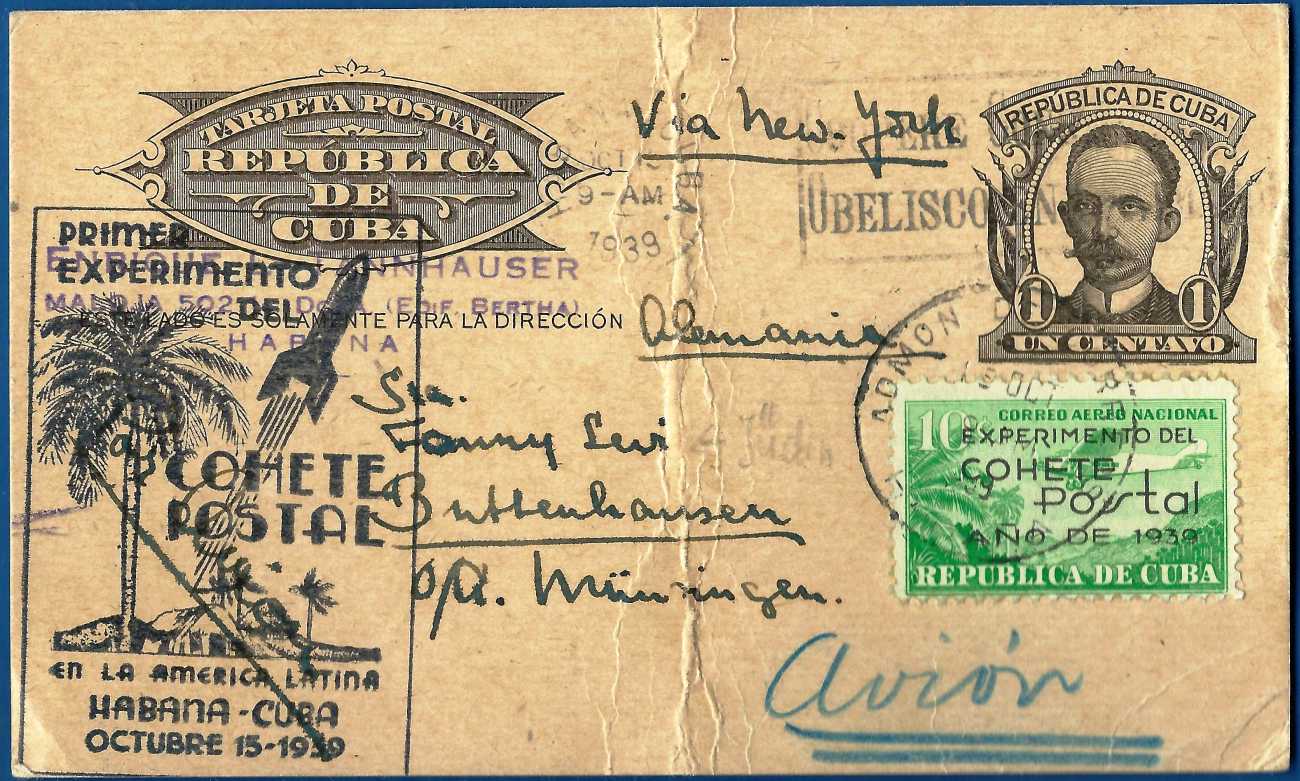 TARJETA POSTAL
REPÚBLICA
DE
CUBA
Via New-York
REPÚBLICA DE CUBA
1 1
UN CENTAVO
OCT
9-AM
1939
OBELISCO
PRIMER
EXPERIMENTO
DEL
COHETE
POSTAL
EN LA AMERICA LATINA
HABANA-CUBA
OCTUBRE 15-1939
ENRIQUE
MALOJA 502 (EDIF. BERTHA)
HABANA
ESTE LADO ES SOLAMENTE PARA LA DIRECCIÓN
Alemania
Fanny Levi
Buttenhausen
Münsingen.
ADMON
OCT
10¢
CORREO AEREO NACIONAL
EXPERIMENTO DEL
COHETE
Postal
AÑO DE 1939
REPUBLICA DE CUBA
Avión